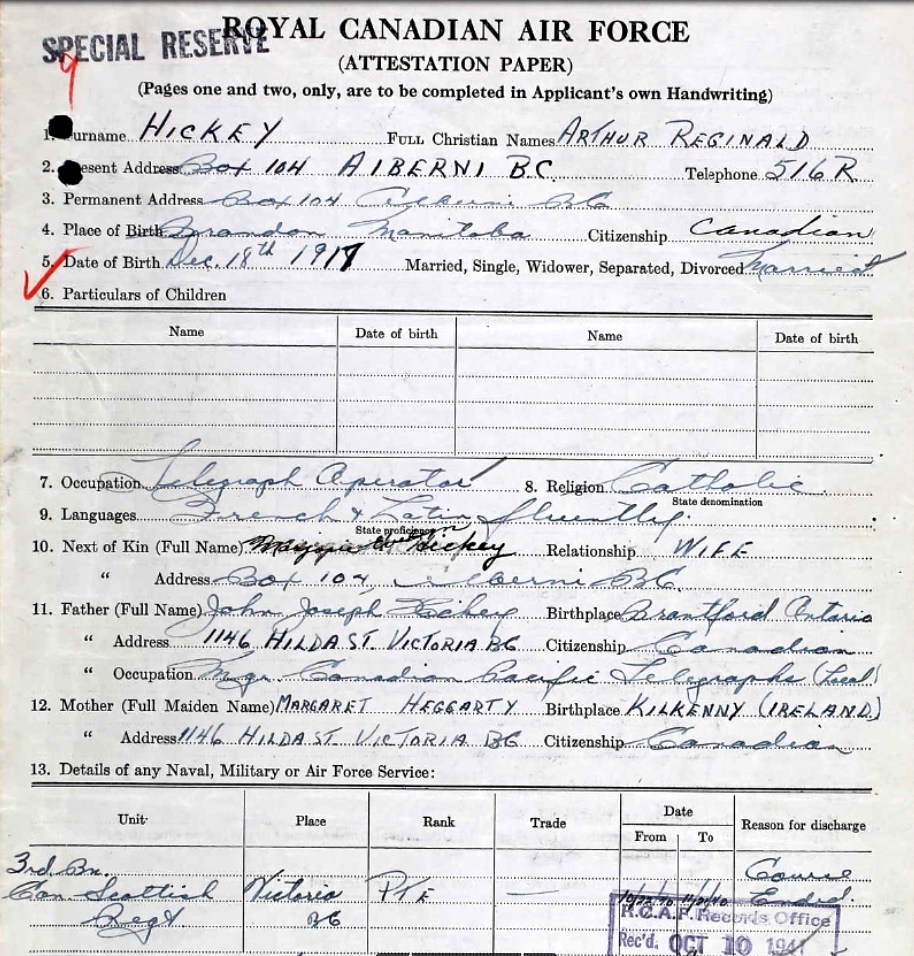 SPECIAL RESERVE
ROYAL CANADIAN AIR FORCE
9
(ATTESTATION PAPER)
(Pages one and two, only, are to be completed in Applicant's own Handwriting)
1. urname HICKEY Full Christian Names ARTHUR REGINALD
2. esent Address Box 104 AlBERNI BC. Telephone 516R
3. Permanent Address Box 104 Alberni BC
4. Place of Birth Brandon Manitoba Citizenship Canadian
5. Date of Birth Dec. 18th 1917 Married, Single, Widower, Separated, Divorced Married
6. Particulars of Children
Name Date of birth Name Date of birth
7. Occupation Telegraph Operator 8. Religion Catholic
State denomination
9. Languages French & Latin fluently.
State proficiency
10. Next of Kin (Full Name) Marjorie Hickey Relationship WIFE
" Address Box 104, Alberni BC.
11. Father (Full Name) John Joseph Hickey Birthplace Brantford Ontario
" Address 1146 HILDA ST. VICTORIA BC Citizenship Canadian
" Occupation Mgr. Canadian Pacific Telegraphs (Local)
12. Mother (Full Maiden Name) MARGARET HEGGARTY Birthplace KILKENNY (IRELAND)
" Address 1146 HILDA ST. VICTORIA BC Citizenship Canadian
13. Details of any Naval, Military or Air Force Service:
Unit Place Rank Trade Date Reason for discharge
From To
3rd. Bn. Course
Can. Scottish Victoria PTE — Ended
Regt BC
R.C.A.F. Records Office
Rec'd. OCT 10 1941